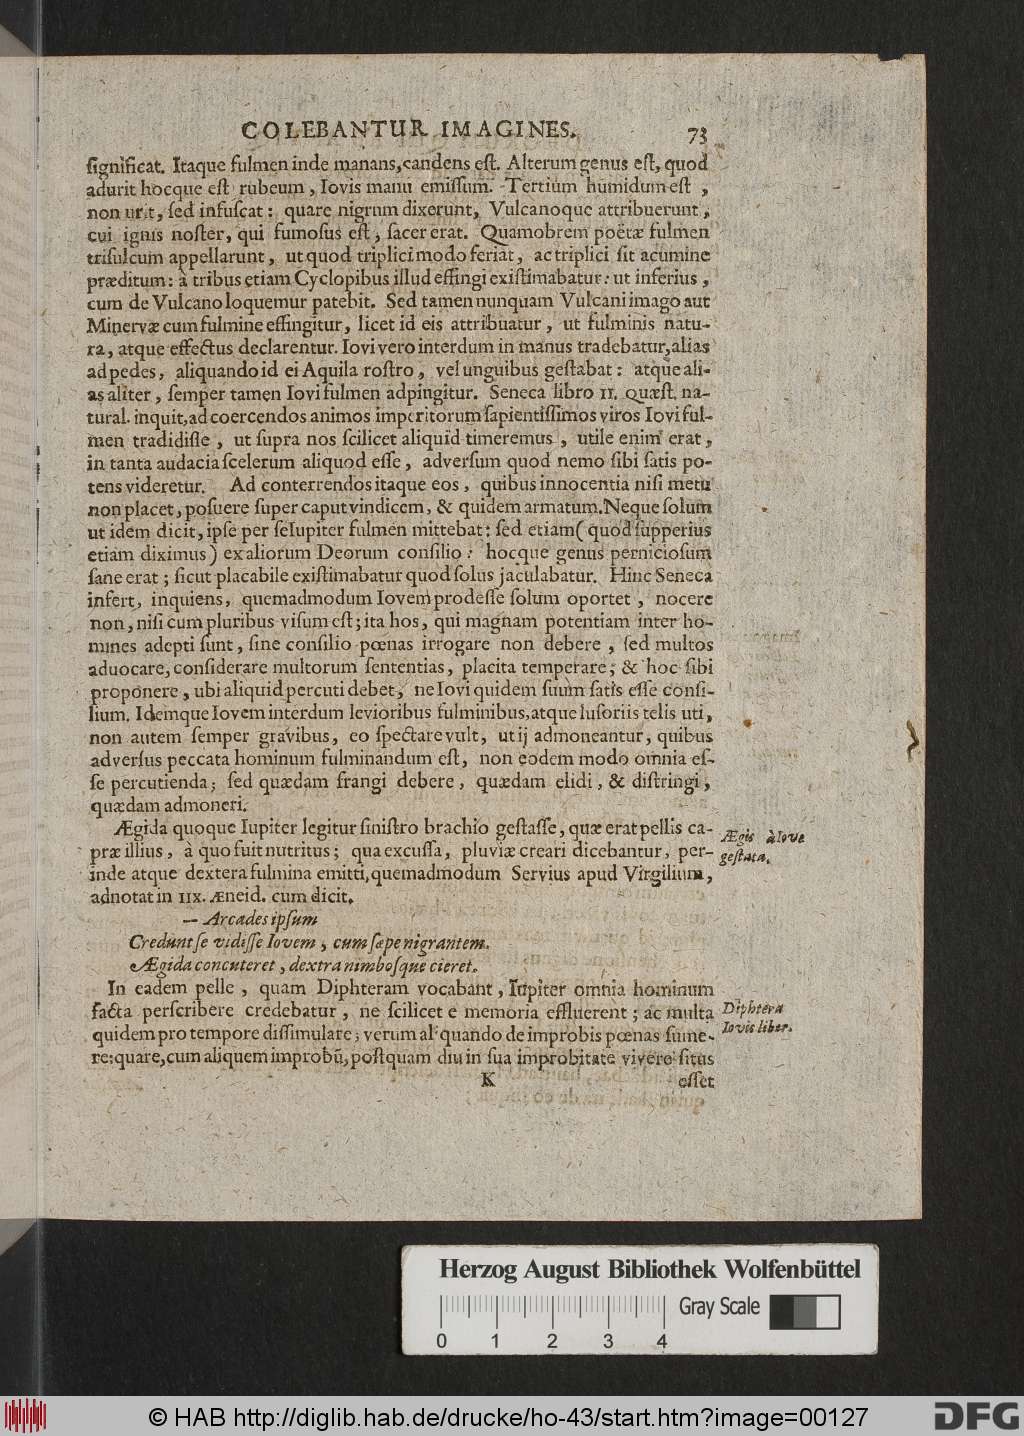 COLEBANTUR IMAGINES. 73
ſignificat. Itaque fulmen inde manans, candens eſt. Alterum genus eſt, quod
adurit hocque eſt rubeum, Iovis manu emiſſum. Tertium humidum eſt,
non urit, ſed infuſcat: quare nigrum dixerunt, Vulcanoque attribuerunt,
cui ignis noſter, qui fumoſus eſt, ſacer erat. Quamobrem poëtæ fulmen
triſulcum appellarunt, ut quod triplici modo feriat, ac triplici ſit acumine
præditum: à tribus etiam Cyclopibus illud effingi exiſtimabatur: ut inferius,
cum de Vulcano loquemur patebit. Sed tamen nunquam Vulcani imago aut
Minervæ cum fulmine effingitur, licet id eis attribuatur, ut fulminis natu-
ra, atque effectus declarentur. Iovi vero interdum in manus tradebatur, alias
ad pedes, aliquando id ei Aquila roſtro, vel unguibus geſtabat: atque ali-
as aliter, ſemper tamen Iovi fulmen adpingitur. Seneca libro II. Quæſt. na-
tural. inquit, ad coercendos animos imperitorum ſapientiſſimos viros Iovi ful-
men tradidiſſe, ut ſupra nos ſcilicet aliquid timeremus, utile enim erat,
in tanta audacia ſcelerum aliquod eſſe, adverſum quod nemo ſibi ſatis po-
tens videretur. Ad conterrendos itaque eos, quibus innocentia niſi metu
non placet, poſuere ſuper caput vindicem, & quidem armatum. Neque ſolum
ut idem dicit, ipſe per ſe Iupiter fulmen mittebat: ſed etiam (quod ſupperius
etiam diximus) ex aliorum Deorum conſilio: hocque genus pernicioſum
ſane erat; ſicut placabile exiſtimabatur quod ſolus jaculabatur. Hinc Seneca
infert, inquiens, quemadmodum Iovem prodeſſe ſolum oportet, nocere
non, niſi cum pluribus viſum eſt; ita hos, qui magnam potentiam inter ho-
mines adepti ſunt, ſine conſilio pœnas irrogare non debere, ſed multos
aduocare, conſiderare multorum ſententias, placita temperare; & hoc ſibi
proponere, ubi aliquid percuti debet, ne Iovi quidem ſuum ſatis eſſe conſi-
lium. Idemque Iovem interdum levioribus fulminibus, atque luſoriis telis uti,
non autem ſemper gravibus, eo ſpectare vult, ut ij admoneantur, quibus
adverſus peccata hominum fulminandum eſt, non eodem modo omnia eſ-
ſe percutienda; ſed quædam frangi debere, quædam elidi, & diſtringi,
quædam admoneri.
Ægida quoque Iupiter legitur ſiniſtro brachio geſtaſſe, quæ erat pellis ca-
præ illius, à quo fuit nutritus; qua excuſſa, pluviæ creari dicebantur, per-
inde atque dextera fulmina emitti, quemadmodum Servius apud Virgilium,
adnotat in IIX. Æneid. cum dicit.
Ægis à Iove
geſtata.
— Arcades ipſum
Credunt ſe vidiſſe Iovem, cum ſæpe nigrantem.
Ægida concuteret, dextra nimboſque cieret.
In eadem pelle, quam Diphteram vocabant, Iupiter omnia hominum
facta perſcribere credebatur, ne ſcilicet e memoria effluerent; ac multa
quidem pro tempore diſſimulare; verum aliquando de improbis pœnas ſume-
re: quare, cum aliquem improbũ, poſtquam diu in ſua improbitate vivere ſitus
Diphtera
Iovis liber.
K eſſet
Herzog August Bibliothek Wolfenbüttel
Gray Scale
0 1 2 3 4
© HAB http://diglib.hab.de/drucke/ho-43/start.htm?image=00127
DFG